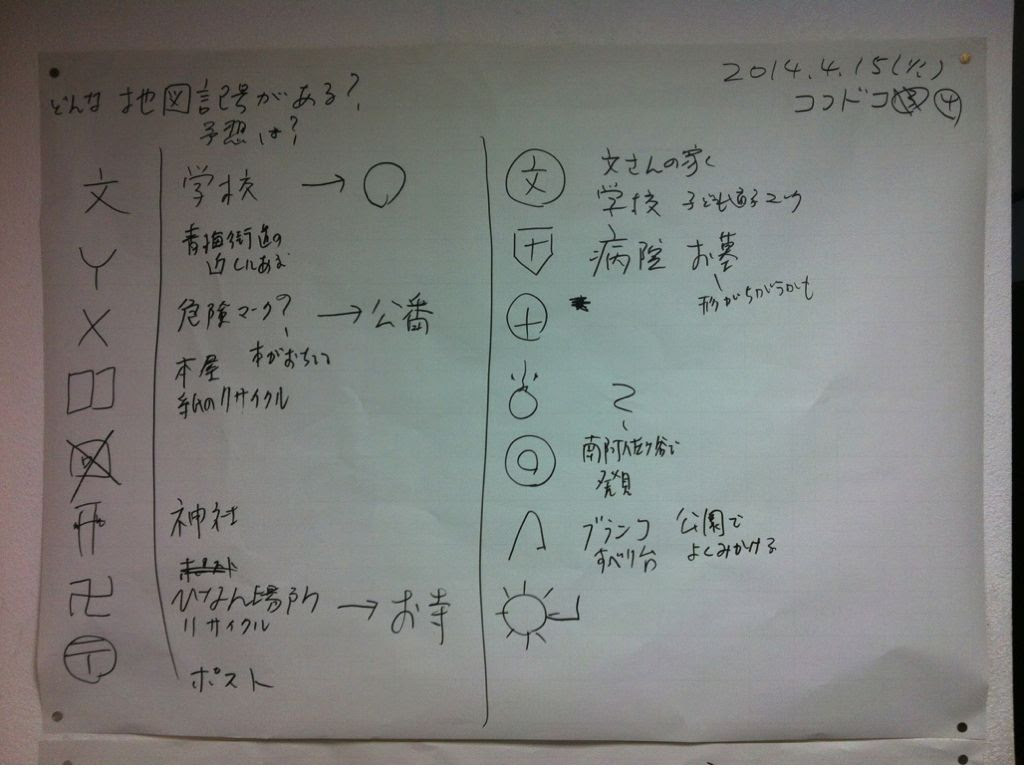 2014.4.15(火)
ココドコ ④
どんな 地図記号がある?
予想は?
文 学校 → ○
Y 青梅街道の
近くにある
X 危険マーク? → 公番
本屋 本がおちてる
紙のリサイクル
神社
卍 ひなん場所 → お寺
リサイクル
〒 ポスト
文 文さんの家
学校 子ども
病院 お墓
形がちがうかも
?
南阿佐ヶ谷で
発見
ブランコ 公園で
すべり台 よくみかける